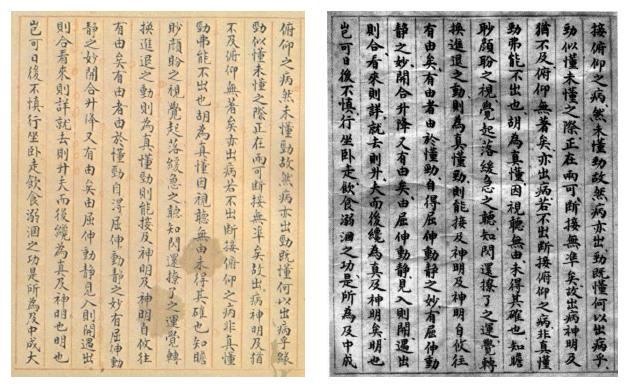 俯仰之病然未懂勁故然病亦出勁既懂何以出病乎緣
勁似懂未懂之際正在兩可斷接無準矣故出病神明及猶
不及俯仰無著矣亦出病若不出斷接俯仰之病非真懂
勁弗能不出也胡為真懂因視聽無由未得其確也知瞻
眇顏盼之視覺起落緩急之聽知閃還撩了之運覺轉
換進退之動則為真懂勁則能接及神明及神明自攸往
有由矣有由者由於懂勁自得屈伸動靜之妙有屈伸動
靜之妙開合升降又有由矣由屈伸動靜見入則開遇出
則合看來則詳就去則升夫而後纔為真及神明也明也
豈可日後不慎行坐臥走飲食溺溷之功是所為及中成大
接俯仰之病然未懂勁故然病亦出勁既懂何以出病乎
勁似懂未懂之際正在兩可斷接無準矣故出病神明及
猶不及俯仰無著矣亦出病若不出斷接俯仰之病非真懂
勁弗能不出也胡為真懂因視聽無由未得其確也知瞻
眇顏盼之視覺起落緩急之聽知閃還撩了之運覺轉
換進退之動則為真懂勁則能接及神明及神明自攸往
有由矣有由者由於懂勁自得屈伸動靜之妙有屈伸動
靜之妙開合升降又有由矣由屈伸動靜見入則開遇出
則合看來則詳就去則升夫而後纔為真及神明矣明也
豈可日後不慎行坐臥走飲食溺溷之功是所為及中成